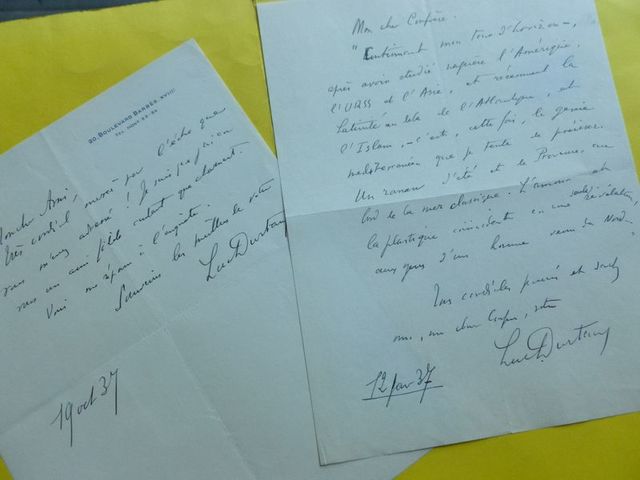 90 BOULEVARD BARBÈS. XVIIIe
TEL.
Mon cher Ami,
très cordial merci pour l'écho que
vous m'avez
un ami fidèle autant que charmant.
Vous
Souvenirs les meilleurs de votre
Luc Durtain
19 oct 37
Mon cher Confrère.
"Continuant mon tour d'horizon,
après avoir étudié naguère l'Amérique,
l'URSS et l'Asie, et récemment la
Latinité au delà de l'Atlantique, et
l'Islam, c'est, cette fois, le génie
méditerranéen que je tente de préciser.
Un roman d'été et de Provence, au
bord de la mer classique. L'amour et
la plastique coïncidant en une seule révélation,
aux yeux d'un homme venu du Nord.
Mes cordiales pensées et
moi, mon cher Confrère, votre
Luc Durtain
12 jan 37